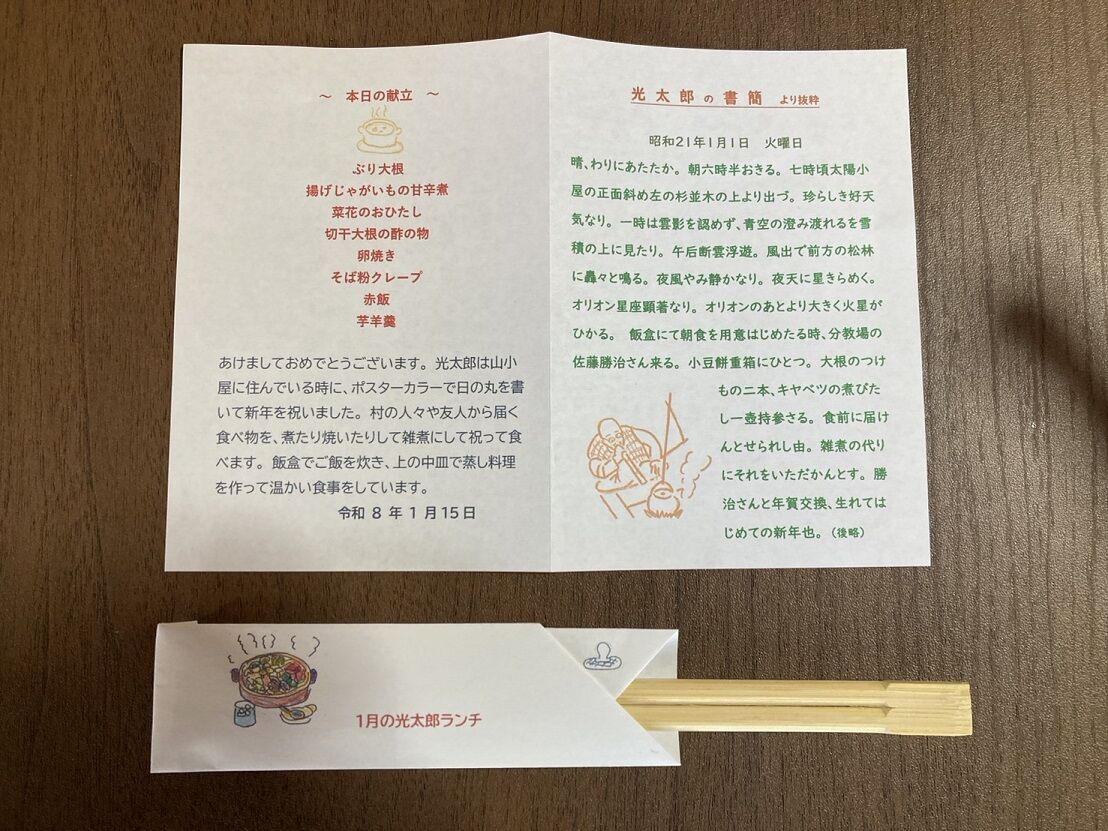 ～ 本日の献立 ～
ぶり大根
揚げじゃがいもの甘辛煮
菜花のおひたし
切干大根の酢の物
卵焼き
そば粉クレープ
赤飯
芋羊羹
あけましておめでとうございます。光太郎は山小
屋に住んでいる時に、ポスターカラーで日の丸を書
いて新年を祝いました。村の人々や友人から届く
食べ物を、煮たり焼いたりして雑煮にして祝って食
べます。飯盒でご飯を炊き、上の中皿で蒸し料理
を作って温かい食事をしています。
令和 8 年 1 月 15日
光太郎の書簡 より抜粋
昭和21年1月1日 火曜日
晴、わりにあたたか。朝六時半おきる。七時頃太陽小
屋の正面斜め左の杉並木の上より出づ。珍らしき好天
気なり。一時は雲影を認めず、青空の澄み渡れるを雪
積の上に見たり。午后断雲浮遊。風出で前方の松林
に轟々と鳴る。夜風やみ静かなり。夜天に星きらめく。
オリオン星座顕著なり。オリオンのあとより大きく火星が
ひかる。 飯盒にて朝食を用意はじめたる時、分教場の
佐藤勝治さん来る。小豆餅重箱にひとつ。大根のつけ
もの二本、キヤベツの煮びた
し一壺持参さる。食前に届け
んとせられし由。雑煮の代り
にそれをいただかんとす。勝
治さんと年賀交換、生れては
じめての新年也。（後略）
1月の光太郎ランチ